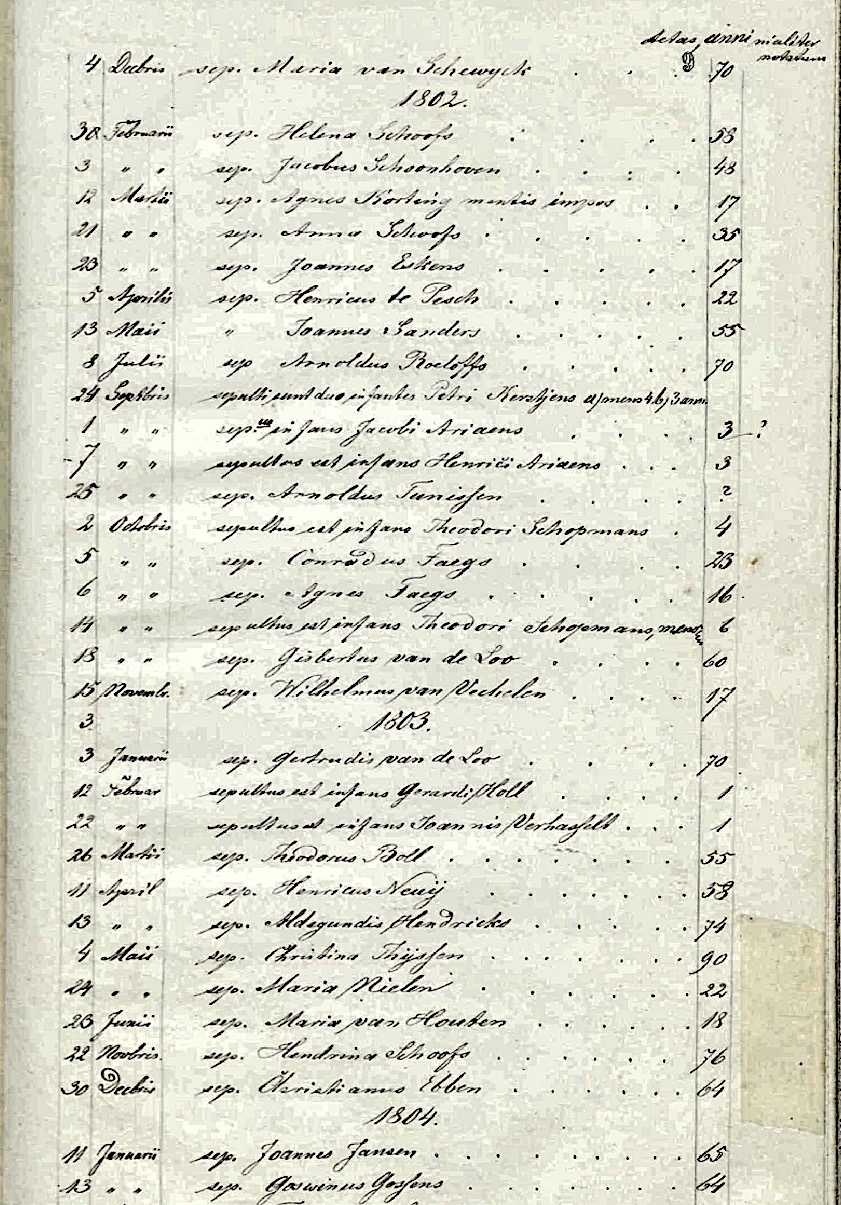 Aetas, anni
4 Decbris sep. Maria van Schewyck . . . 70
1802.
30 Februarii sep. Helena Schoofs . . . 53
3 " " sep. Jacobus Schoonhoven . . . . 48
12 Martii sep. Agnes Korting mentis impos . . 17
21 " " sep. Anna Schoofs . . . . . 35
23 " " sep. Joannes Eskens . . . . . 17
5 Aprilis sep. Henricus te Pesch . . . . . 22
13 Maii " Joannes Sanders . . . . . 55
8 Julii sep Arnoldus Roeloffs . . . . . 70
24 Septbris sepulti sunt duo infantes Petri Kerstjens a) mens 4. b) 3 ann.
1 " " sep.us infans Jacobi Ariaens . . . . 3 ?
7 " " sepultus est infans Henrici Ariaens . . . 3
25 " " sep. Arnoldus Tunissen . . . . . ?
2 Octobris sepultus est infans Theodori Schopmans . 4
5 " " sep. Conradus Faegs . . . . . 23
6 " " sep. Agnes Faegs . . . . . . 16
14 " " sepultus est infans Theodori Schopmans, 6
18 " " sep. Gisbertus van de Loo . . . . 60
15 Novembr. sep. Wilhelmus van Vechelen . . . . 17
3. 1803.
3 Januarii sep. Gertrudis van de Loo . . . . 70
12 Februar sepultus est infans Gerardi Holl . . . . 1
22 " " sepultus est infans Joannis Verhasselt . . . 1
26 Martii sep. Theodorus Boll . . . . . . . 55
11 April sep. Henricus Neuij . . . . . . 58
13 " " sep. Aldegundis Hendricks . . . . . 74
4 Maii sep. Christina Thijssen . . . . . . 90
24 " " sep. Maria Nielen . . . . . . 22
23 Junii sep. Maria van Houten . . . . . 18
22 Novbris. sep. Hendrina Schoofs . . . . . . 76
30 Decbris sep. Christianus Ebben . . . . . . 64
1804.
11 Januarii sep. Joannes Jansen . . . . . . . . 65
13 " " sep. Goswinus Gossens . . . . . . . 64